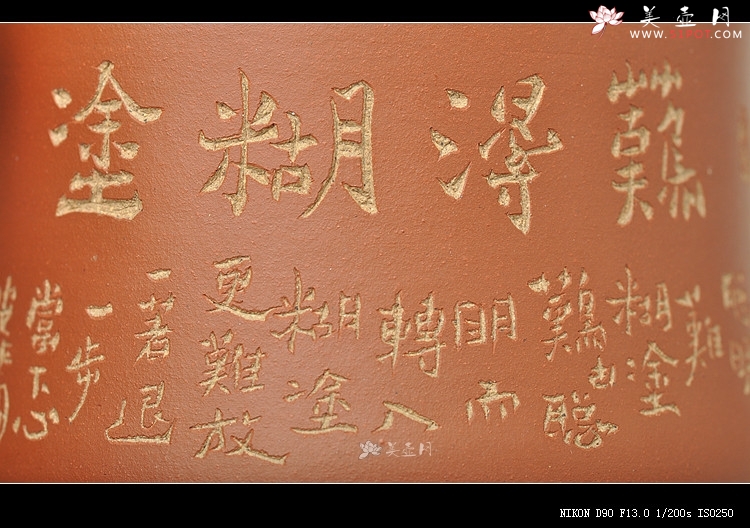 美壶网
難得糊塗
難
糊塗
難由聰
明而
轉入
糊塗
更難放
一著退
一步
當下心
美壶网
NIKON D90 F13.0 1/200s ISO250